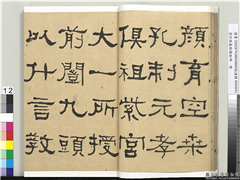 顏育空桒
孔制元孝
俱祖紫宮
大一所授
前闓九頭
以什言教
12